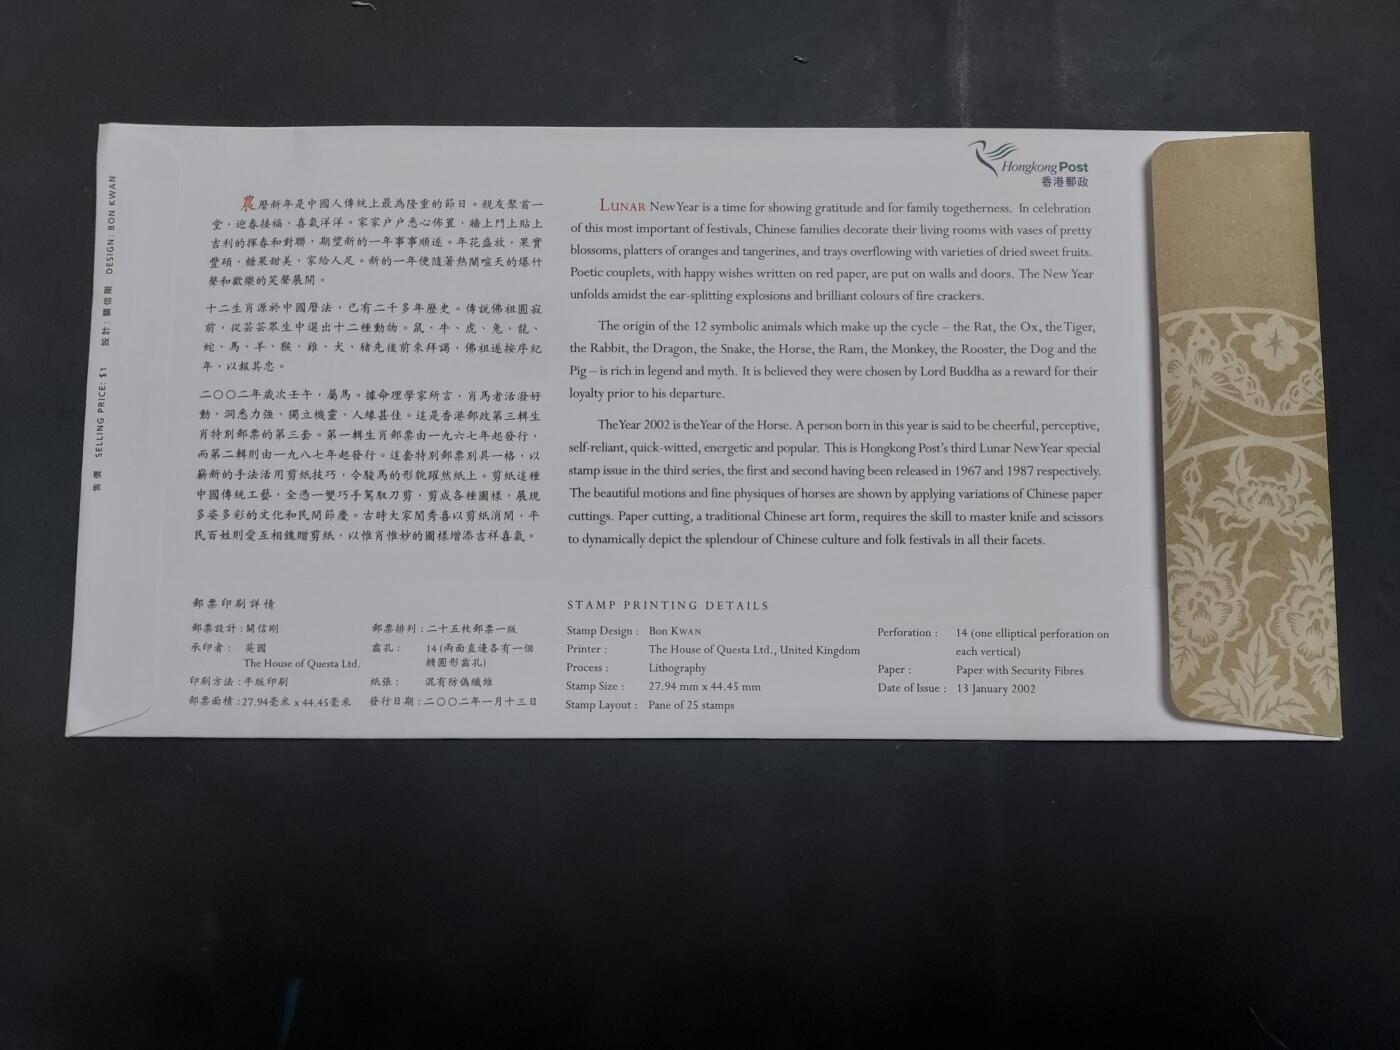 Hongkong Post
香港郵政
農曆新年是中國人傳統上最為隆重的節日。親友聚首一
堂，迎春接福，喜氣洋洋。家家户户悉心佈置，牆上門上貼上
吉利的揮春和對聯，期望新的一年事事順遂。年花盛放，果實
豐碩，糖果甜美，家給人足。新的一年便隨著熱鬧喧天的爆竹
聲和歡樂的笑聲展開。
十二生肖源於中國曆法，已有二千多年歷史。傳說佛祖圓寂
前，從芸芸眾生中選出十二種動物。鼠、牛、虎、兔、龍、
蛇、馬、羊、猴、雞、犬、豬先後前來拜謁，佛祖遂按序紀
年，以報其忠。
二〇〇二年歲次壬午，屬馬。據命理學家所言，肖馬者活潑好
動、洞悉力強、獨立機靈、人緣甚佳。這是香港郵政第三輯生
肖特別郵票的第三套。第一輯生肖郵票由一九六七年起發行，
而第二輯則由一九八七年起發行。這套特別郵票別具一格，以
嶄新的手法活用剪紙技巧，令駿馬的形貌躍然紙上。剪紙這種
中國傳統工藝，全憑一雙巧手駕馭刀剪，剪成各種圖樣，展現
多姿多彩的文化和民間節慶。古時大家閨秀喜以剪紙消閒，平
民百姓則愛互相餽贈剪紙，以惟肖惟妙的圖樣增添吉祥喜氣。
LUNAR New Year is a time for showing gratitude and for family togetherness. In celebration
of this most important of festivals, Chinese families decorate their living rooms with vases of pretty
blossoms, platters of oranges and tangerines, and trays overflowing with varieties of dried sweet fruits.
Poetic couplets, with happy wishes written on red paper, are put on walls and doors. The New Year
unfolds amidst the ear-splitting explosions and brilliant colours of fire crackers.
The origin of the 12 symbolic animals which make up the cycle – the Rat, the Ox, the Tiger,
the Rabbit, the Dragon, the Snake, the Horse, the Ram, the Monkey, the Rooster, the Dog and the
Pig – is rich in legend and myth. It is believed they were chosen by Lord Buddha as a reward for their
loyalty prior to his departure.
The Year 2002 is the Year of the Horse. A person born in this year is said to be cheerful, perceptive,
self-reliant, quick-witted, energetic and popular. This is Hongkong Post's third Lunar New Year special
stamp issue in the third series, the first and second having been released in 1967 and 1987 respectively.
The beautiful motions and fine physiques of horses are shown by applying variations of Chinese paper
cuttings. Paper cutting, a traditional Chinese art form, requires the skill to master knife and scissors
to dynamically depict the splendour of Chinese culture and folk festivals in all their facets.
郵票印刷詳情
郵票設計：關信剛
承印者： 英國
The House of Questa Ltd.
印刷方法：平版印刷
郵票面積：27.94毫米 x 44.45毫米
郵票排列：二十五枚郵票一版
齒孔： 14 (兩面直邊各有一個
橢圓形齒孔)
紙張： 混有防偽纖維
發行日期：二〇〇二年一月十三日
STAMP PRINTING DETAILS
Stamp Design : Bon KWAN
Printer : The House of Questa Ltd., United Kingdom
Process : Lithography
Stamp Size : 27.94 mm x 44.45 mm
Stamp Layout : Pane of 25 stamps
Perforation : 14 (one elliptical perforation on
each vertical)
Paper : Paper with Security Fibres
Date of Issue : 13 January 2002
售價 SELLING PRICE: $1 設計：關信剛 DESIGN: BON KWAN